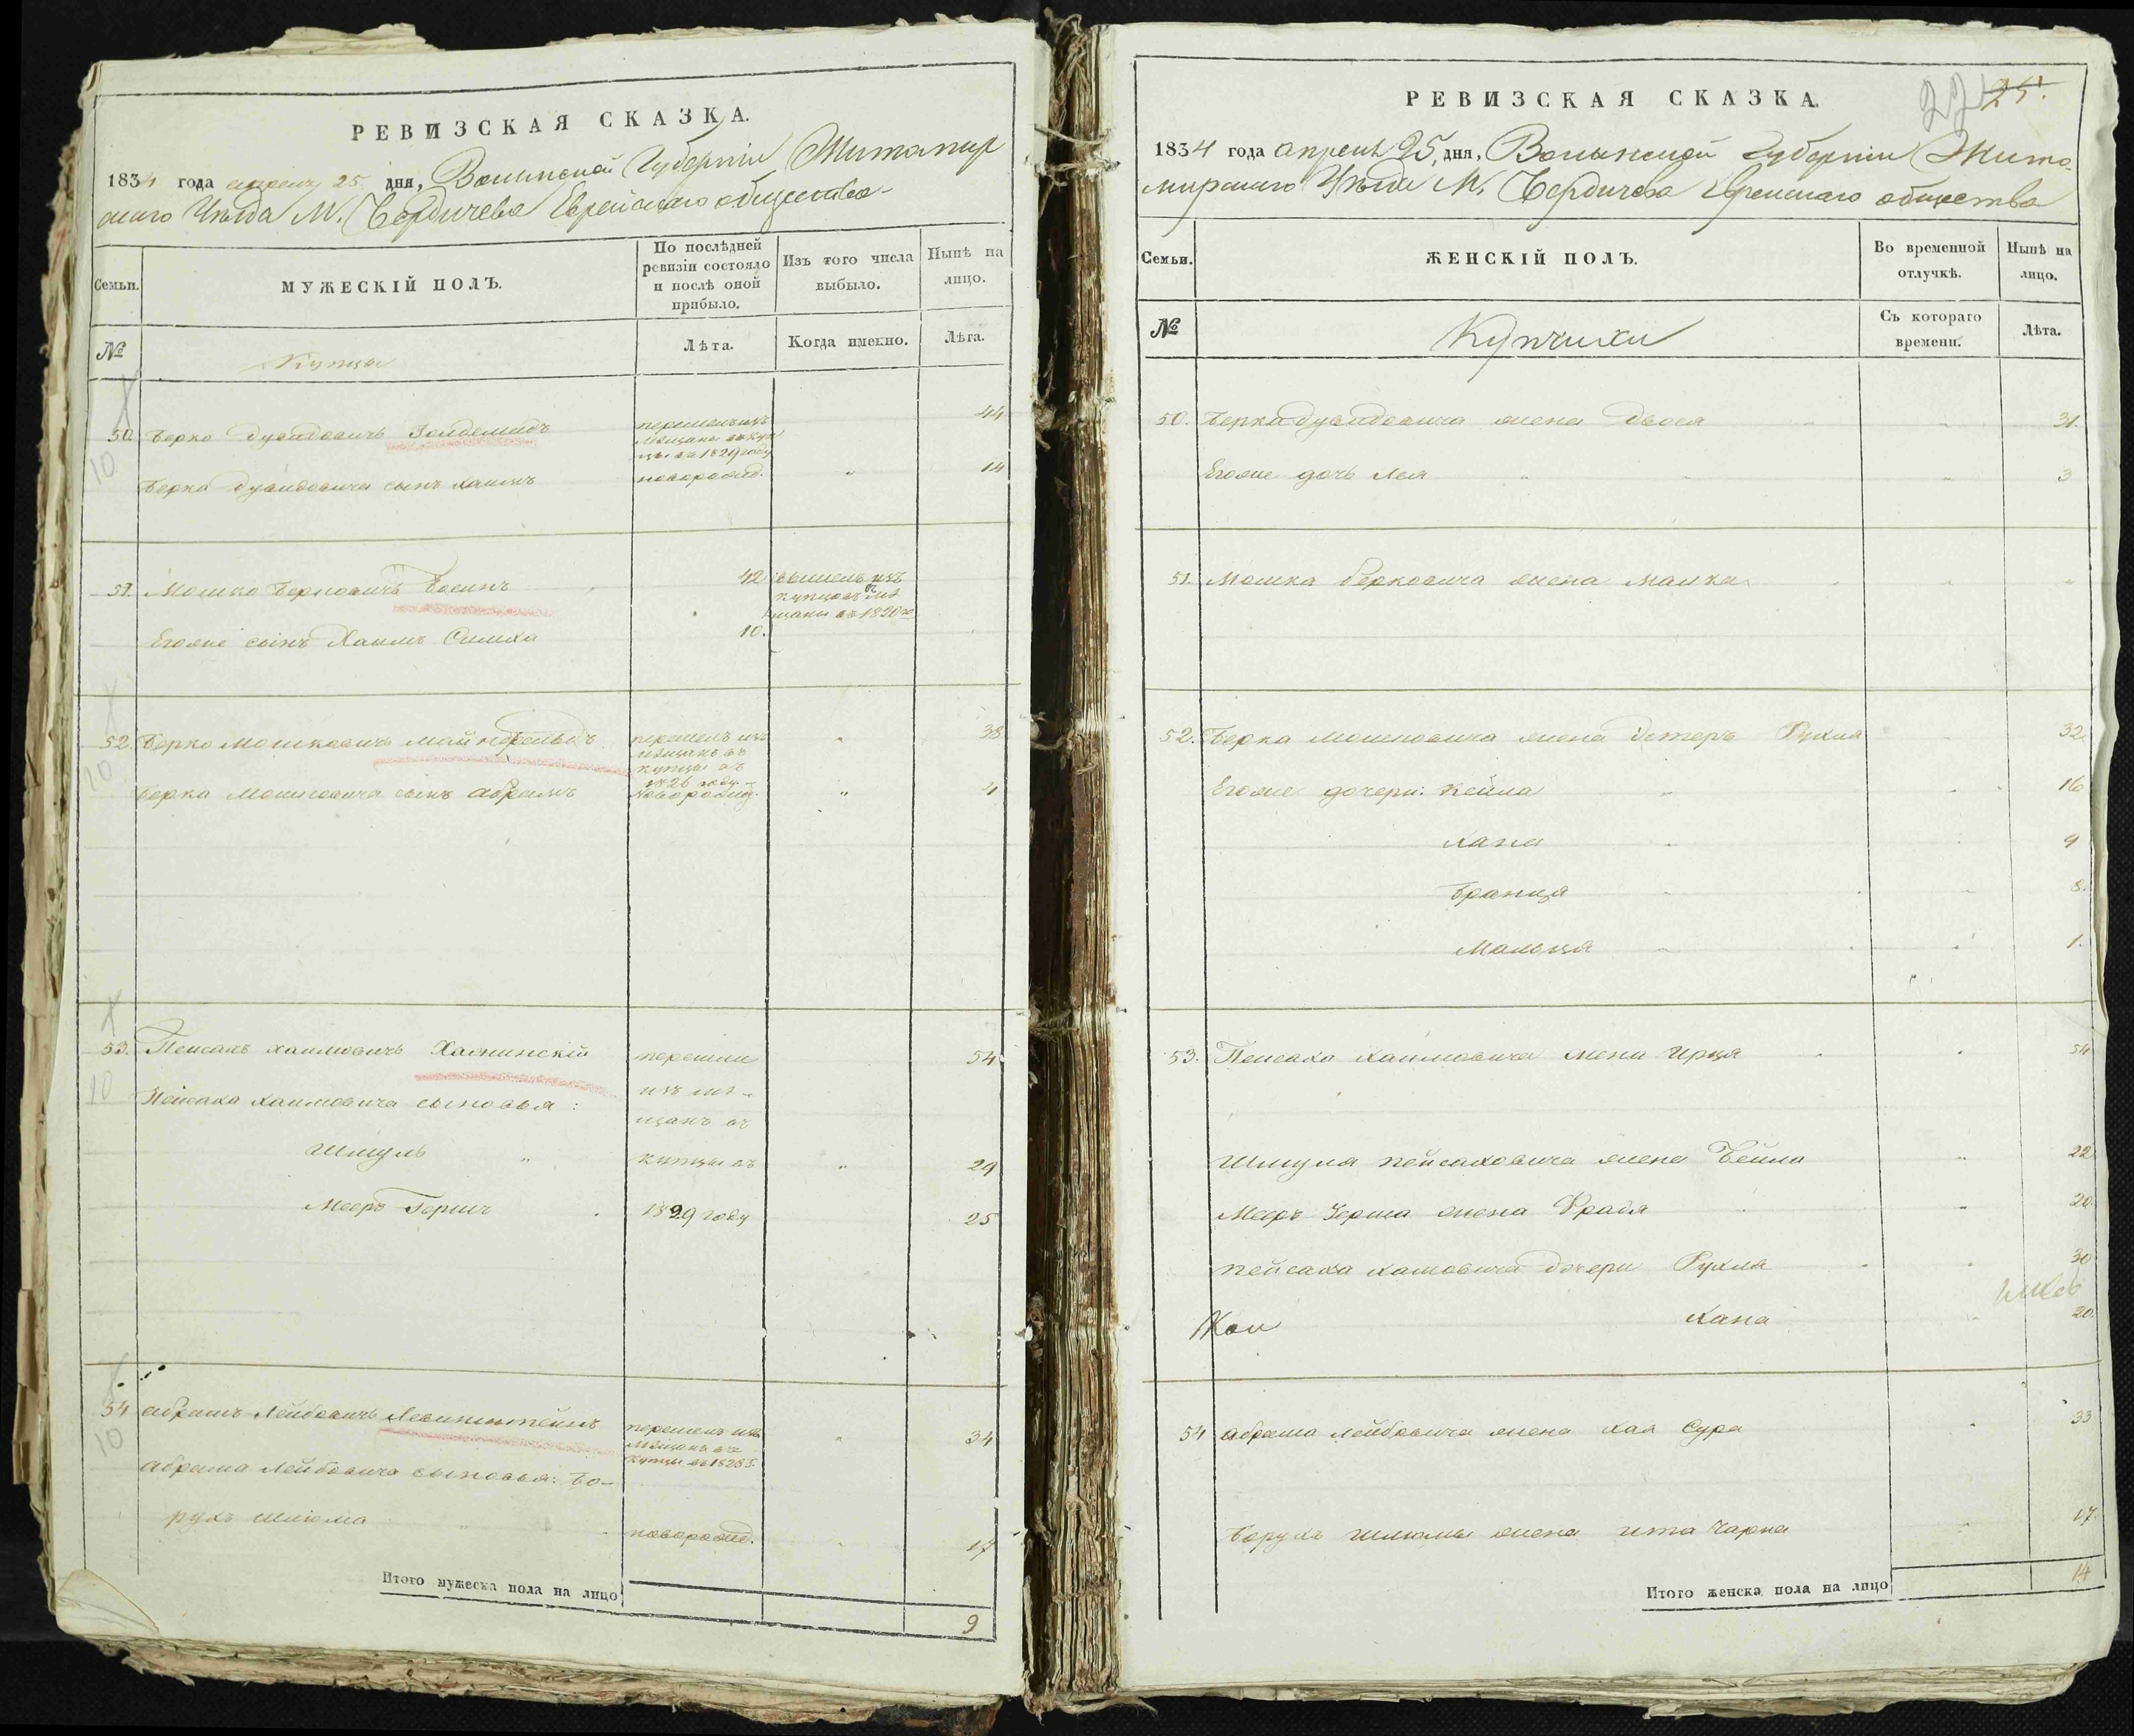 РЕВИЗСКАЯ СКАЗКА.
1834 года апрелу 25 дня, Волынской Губерніи Житомир
скаго Уѣзда М. Бердичева Еврейскаго общества
Семьи.
МУЖЕСКІЙ ПОЛЪ.
По послѣдней
ревизіи состояло
и послѣ оной
прибыло.
Изъ того числа
выбыло.
Нынѣ на
лицо.
№
Купцы
Лѣта.
Когда именно.
Лѣта.
50. Берко Дувидовичъ
перешелъ изъ
мѣщанъ въ куп
цы въ 1829 году
44
10
Берка Дувидовича сынъ Хаимъ
новорожд.
14
51. Мошко Берковичъ
42
вышелъ изъ
купцовъ въ мѣ
щаны въ 1820
Егоже сынъ Хаимъ Симха
10.
52. Берко Мошковичъ
перешелъ изъ
мѣщанъ въ
купцы въ
1826 году
38
10
Берка Мошковича сынъ Абрамъ
новорожд.
4
53. Пейсахъ Хаимовичъ
перешли
54
10
Пейсаха Хаимовича сыновья:
изъ мѣ-
щанъ въ
Шмуль
купцы въ
29
Мееръ Гершъ
1829 году
25
54 Абрамъ Лейбовичъ Левинштейнъ
перешелъ изъ
мѣщанъ въ
купцы въ 1828 г.
34
10
Абрама Лейбовича сыновья: Бо-
рухъ Шліома
новорожд.
17
Итого мужеска пола на лицо
9
25.
РЕВИЗСКАЯ СКАЗКА.
1834 года апреля 25, дня, Волынской Губерніи Жито
мирскаго Уѣзда М. Бердичева Еврейскаго общества
Семьи.
ЖЕНСКІЙ ПОЛЪ.
Во временной
отлучкѣ.
Нынѣ на
лицо.
№
Купчихи
Съ котораго
времени.
Лѣта.
50. Берка Дувидовича жена Двося 31
Егоже дочь Лея 3
51. Мошка Берковича жена Малка
52. Берка Мошковича жена Рухля 32
Егоже дочери: Кейла 16
Хана 9
Бранця 8.
Мальця 1.
53. Пейсаха Хаимовича жена Ирця 54
Шмуля Пейсаховича жена Бейла 22
Мееръ Герша жена Фрадя 20
Пейсаха Хаимовича дочери Рухля 30
Хана 20.
54 Абрама Лейбовича жена Хая Сура 33
Борухъ Шліомы жена Ита Чарна 17
Итого женска пола на лицо
14